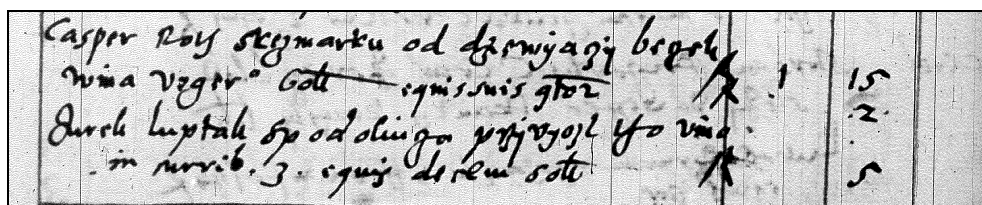 Casper Rotſ Skezmarku od dzewyączy beczek
wina vzger° soll equis suis qtor 1 15
Jurek luptak Sp od oliuza przivyozl tho vina 2
in currib. 3. equis decem solt 5